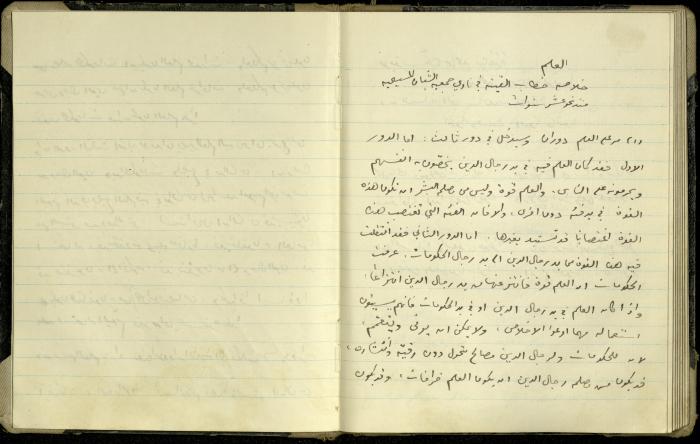 العلم
خلاصة خطاب القيته في نادي جمعية الشبان المسيحية
منذ نحو عشر سنوات
(١) مر على العلم دوران وسيدخل في دور ثالث: اما الدور
الاول فقد كان العلم فيه في يد رجال الدين يختصون به انفسهم
ويحرمونه على الناس. والعلم قوة وليس من صالح البشر ان تكون هذه
القوة في يد فئة دون اخرى، ولا فان الفئة التي تغتصب هذه
القوة اغتصابا قد تستبد بغيرها. اما الدور الثاني فقد انتقلت
فيه هذه القوة من يد رجال الدين الى يد رجال الحكومات. عرفت
الحكومات ان العلم قوة فانتزعتها من يد رجال الدين انتزاعا.
واذا كان العلم في يد رجال الدين او في يد الحكومات فانهم يسيئون
استعماله مهما ادعوا الاخلاص، ولا يمكن ان يرقى
لان للحكومات ولرجال الدين مصالح تحول دون رقيه وانتشاره،
فقد يكون من صالح رجال الدين ان يكون العلم خرافات، وقد يكون